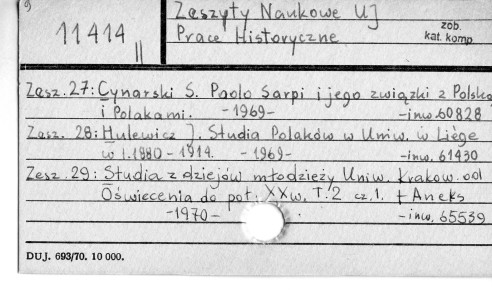 9
Zeszyty Naukowe UJ
11414 II
Prace Historyczne
zob.
kat. komp.
Zesz. 27: Cynarski S. Paolo Sarpi i jego związki z Polską
i Polakami. -1969- -inw. 60828
Zesz. 28: Hulewicz J. Studia Polaków w Uniw. w Liège
w l. 1880-1914. -1969- -inw. 61430
Zesz. 29: Studia z dziejów młodzieży Uniw. Krakow. od
Oświecenia do poł. XX w. T. 2 cz. 1. + Aneks
-1970- -inw. 65539
DUJ. 693/70. 10 000.